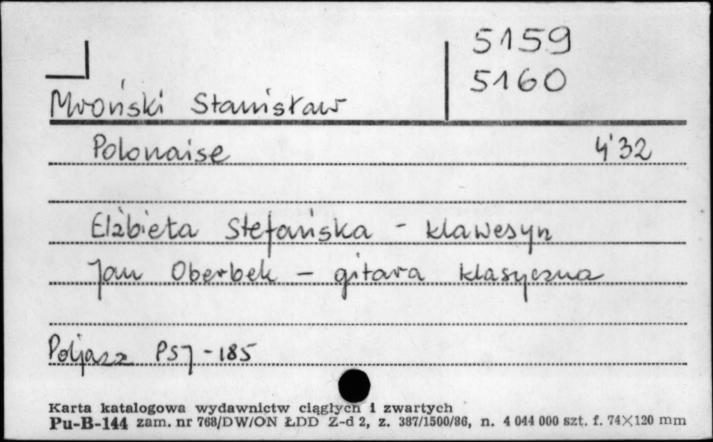 5159
5160
Mroński Stanisław
Polonaise 4'32
Elżbieta Stefańska - klawesyn
Jan Oberbek - gitara klasyczna
Poljazz PSJ-185
Karta katalogowa wydawnictw ciągłych i zwartych
Pu-B-144 zam. nr 768/DW/ON ŁDD Z-d 2, z. 387/1500/86, n. 4 044 000 szt. f. 74×120 mm